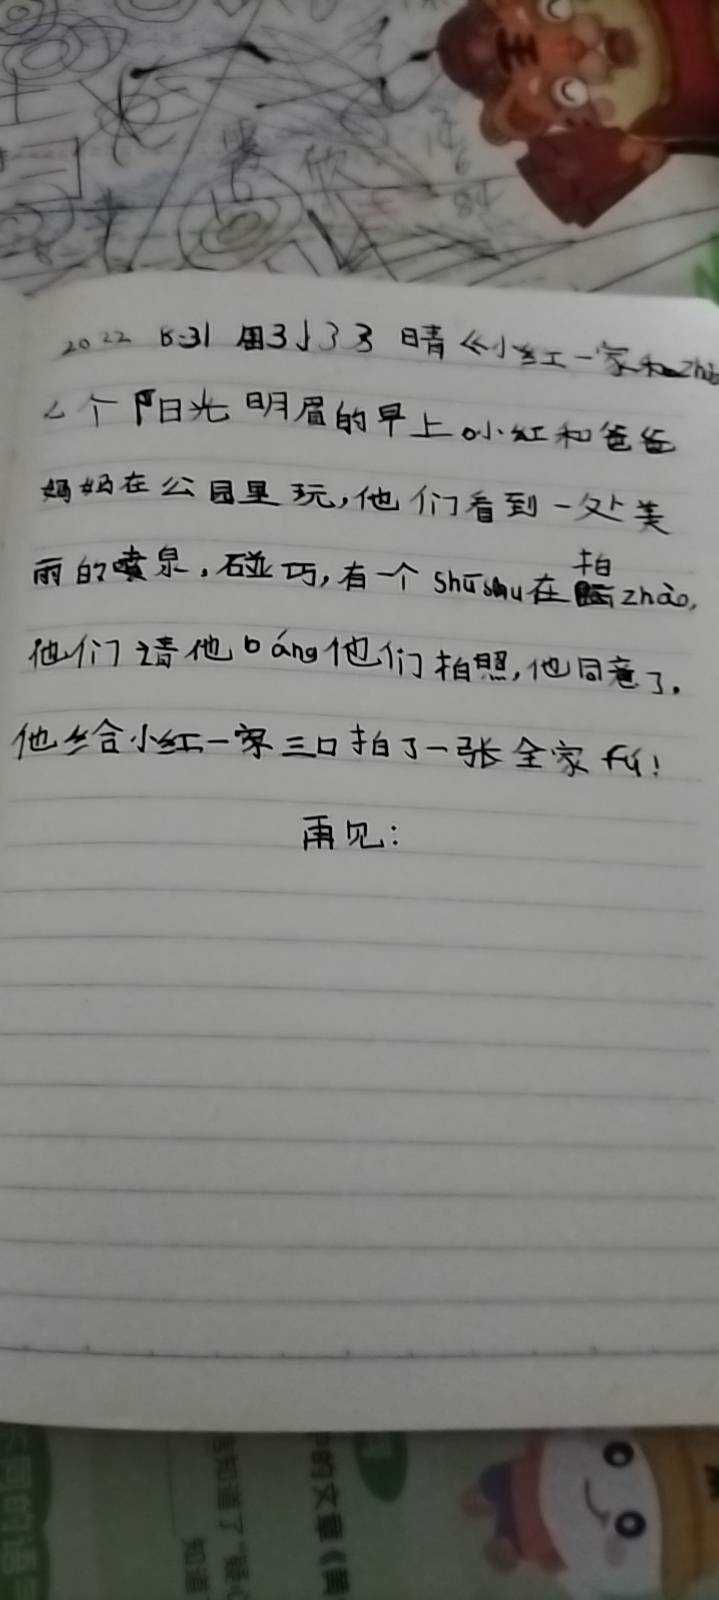 2022 8:31 晴《小红一家和
个阳光明眉的早上。小红和爸爸
妈妈在公园里玩,他们看到一处美
丽的喷泉,碰巧,有一个shūshu在拍zhào,
他们请他báng他们拍照,他同意了。
他给小红一家三口拍了一张全家fú!
再见: